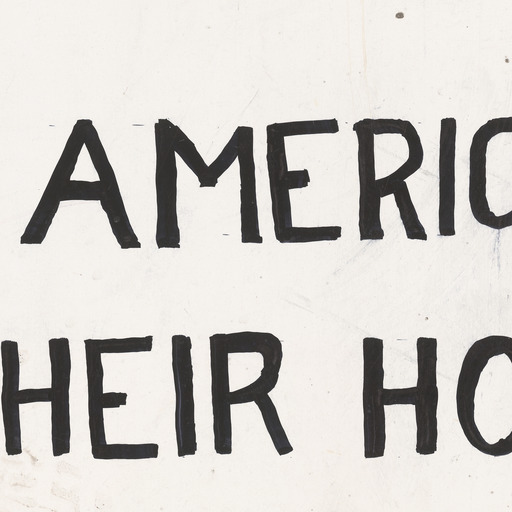 AMERIC
HEIR HO